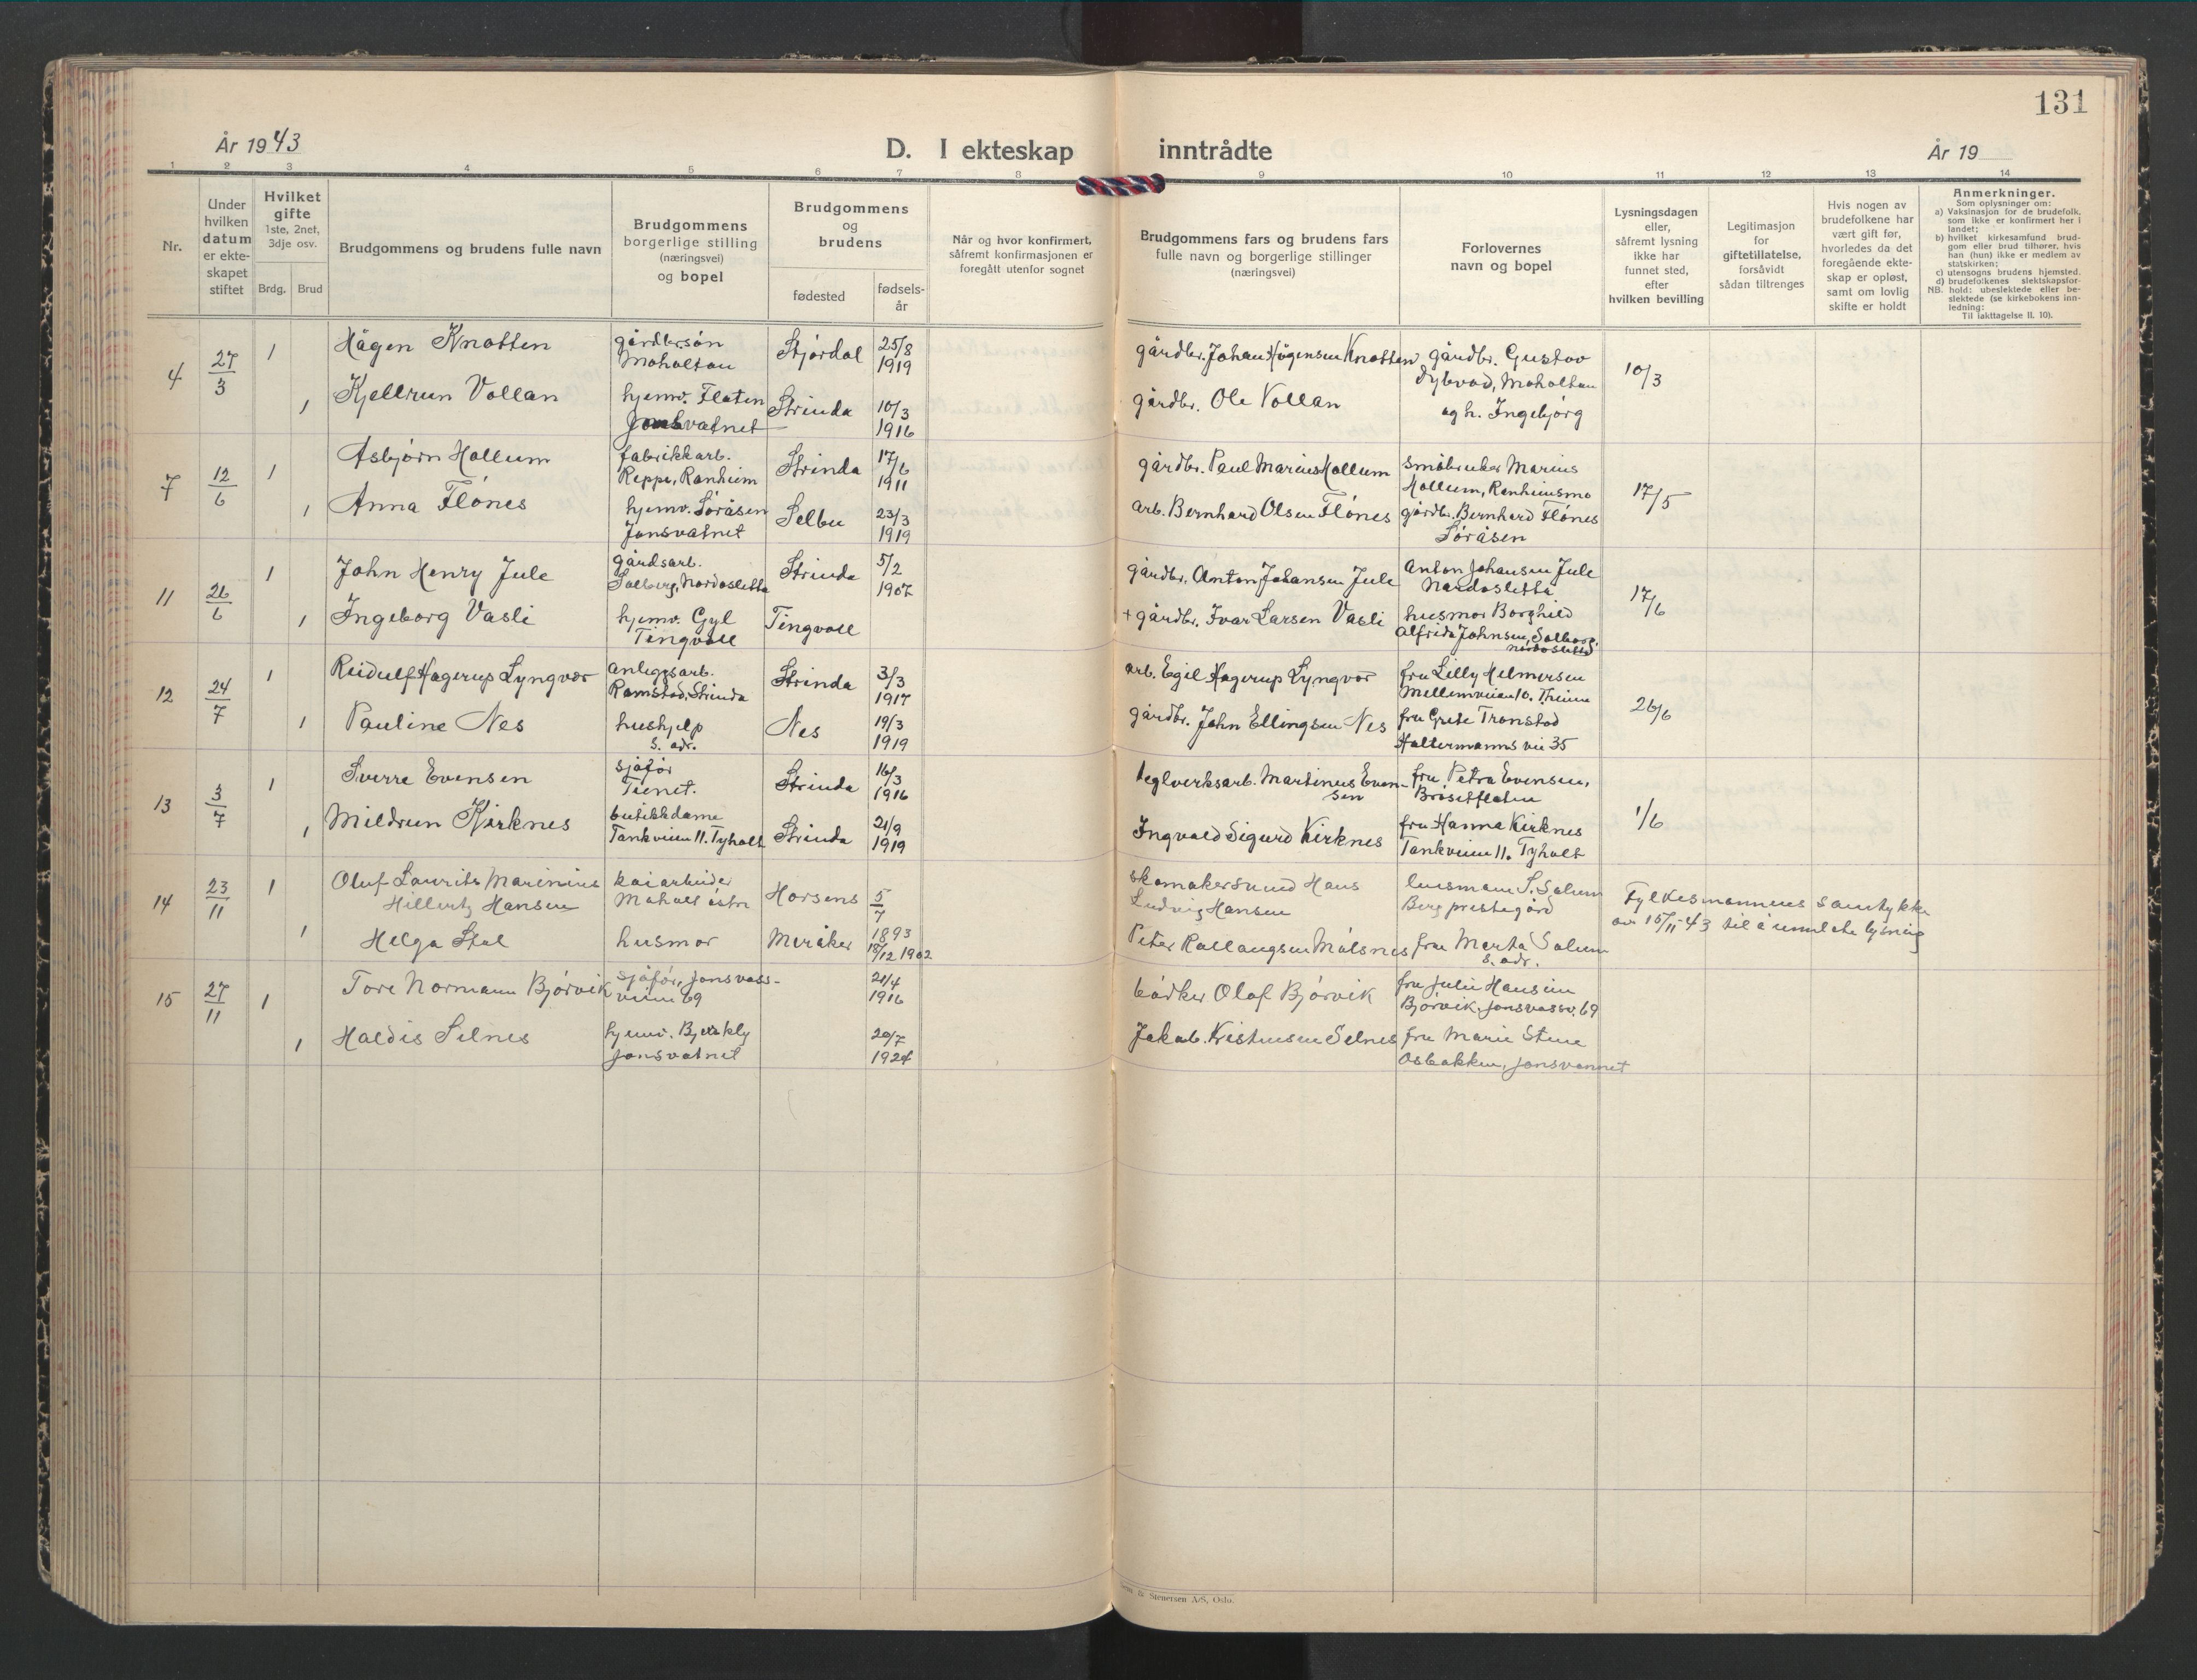 131
År 1943
D. I ekteskap inntrådte
År 19
1 2 3 4 5 6 7 8 9 10 11 12 13 14
Nr.
Under hvilken datum er ekteskapet stiftet
Hvilket gifte 1ste, 2net, 3dje osv.
Brdg. Brud
Brudgommens og brudens fulle navn
Brudgommens borgerlige stilling (næringsvei) og bopel
Brudgommens og brudens
fødested
fødsels-år
Når og hvor konfirmert, såfremt konfirmasjonen er foregått utenfor sognet
Brudgommens fars og brudens fars fulle navn og borgerlige stillinger (næringsvei)
Forlovernes navn og bopel
Lysningsdagen eller, såfremt lysning ikke har funnet sted, efter hvilken bevilling
Legitimasjon for giftetillatelse, forsåvidt sådan tiltrenges
Hvis nogen av brudefolkene har vært gift før, hvorledes da det foregående ekteskap er opløst, samt om lovlig skifte er holdt
Anmerkninger.
Som oplysninger om:
a) Vaksinasjon for de brudefolk. som ikke er konfirmert her i landet;
b) hvilket kirkesamfund brudgom eller brud tilhører, hvis han (hun) ikke er medlem av statskirken;
c) utensogns brudens hjemsted.
d) brudefolkenes slektskapsforhold: ubeslektede eller beslektede (se kirkebokens innledning:
NB.
Til iakttagelse II. 10).
4 27/3 1 Hågen Knotten gårdbr.søn Moholtan Stjørdal 25/8 1919 gårdbr. Johan Hågensen Knotten gårdbr. Gustav Dybvad, Moholtan 10/3
1 Kjellrun Vollan hjemv. Flaten Jonsvatnet Strinda 10/3 1916 gårdbr. Ole Vollan og h. Ingebjørg
7 12/6 1 Asbjørn Hallum fabrikkarb. Reppe, Ranheim Strinda 17/6 1911 gårdbr. Paul Marius Hallum småbruker Marius Hallum, Ranheimsmo 17/5
1 Anna Flönes hjemv. Søråsen Jonsvatnet Selbu 23/3 1919 arb. Bernhard Olsen Flönes gårdbr. Bernhard Flönes Søråsen
11 26/6 1 John Henry Jule gårdsarb. Solberg, Nardosletta Strinda 5/2 1907 gårdbr. Anton Johansen Jule Anton Johansen Jule Nardosletta 17/6
1 Ingeborg Vasli hjemv. Gyl Tingvoll Tingvoll + gårdbr. Ivar Larsen Vasli husmor Borghild Alfrida Johnsen, Solberg, nardosletta
12 24/7 1 Reidulf Hagerup Lyngvær anleggsarb. Ramstad, Strinda Strinda 3/3 1917 arb. Egil Hagerup Lyngvær fru Lilly Helmersen Mellemveien 10. Tr.heim 26/6
1 Pauline Nes hushjelp s. adr. Nes 19/3 1919 gårdbr. John Ellingsen Nes fru Grete Tronstad Haltermanns vei 35
13 3/7 1 Sverre Evensen sjåfør Strinda 16/3 1916 teglverksarb. Martinus Evensen fru Petra Evensen, Brøsetflaten 1/6
1 Mildrun Kirknes butikkdame Tankveien 11. Tyholt Strinda 21/9 1919 Ingvald Sigurd Kirknes fru Hanna Kirknes Tankveien 11. Tyholt
14 23/11 1 Oluf Laurits Marinius Hillertz Hansen kaiarbeider Moholt østre Horsens 5/7 1893 skomakersvend Hans Ludvig Hansen lensmann S. Salum Berg prestegård Fylkesmannens samtykke av 15/11-43 til å unnlate lysning
1 Helga Stal husmor Meråker 18/12 1902 Peter Målsnes fru Marta Salum s. adr.
15 27/11 1 Tore Normann Bjørvik sjåfør, Jonsvassveien 69 21/4 1916 bødker Olaf Bjørvik fru Julie Hansine Bjørvik, Jonsvassv. 69
1 Haldis Selnes hjemv. Bjerkly Jonsvatnet 20/7 1924 Jakob Kristensen Selnes fru Marie Stene Osbakken, Jonsvannet
Stenersen A/S, Oslo.